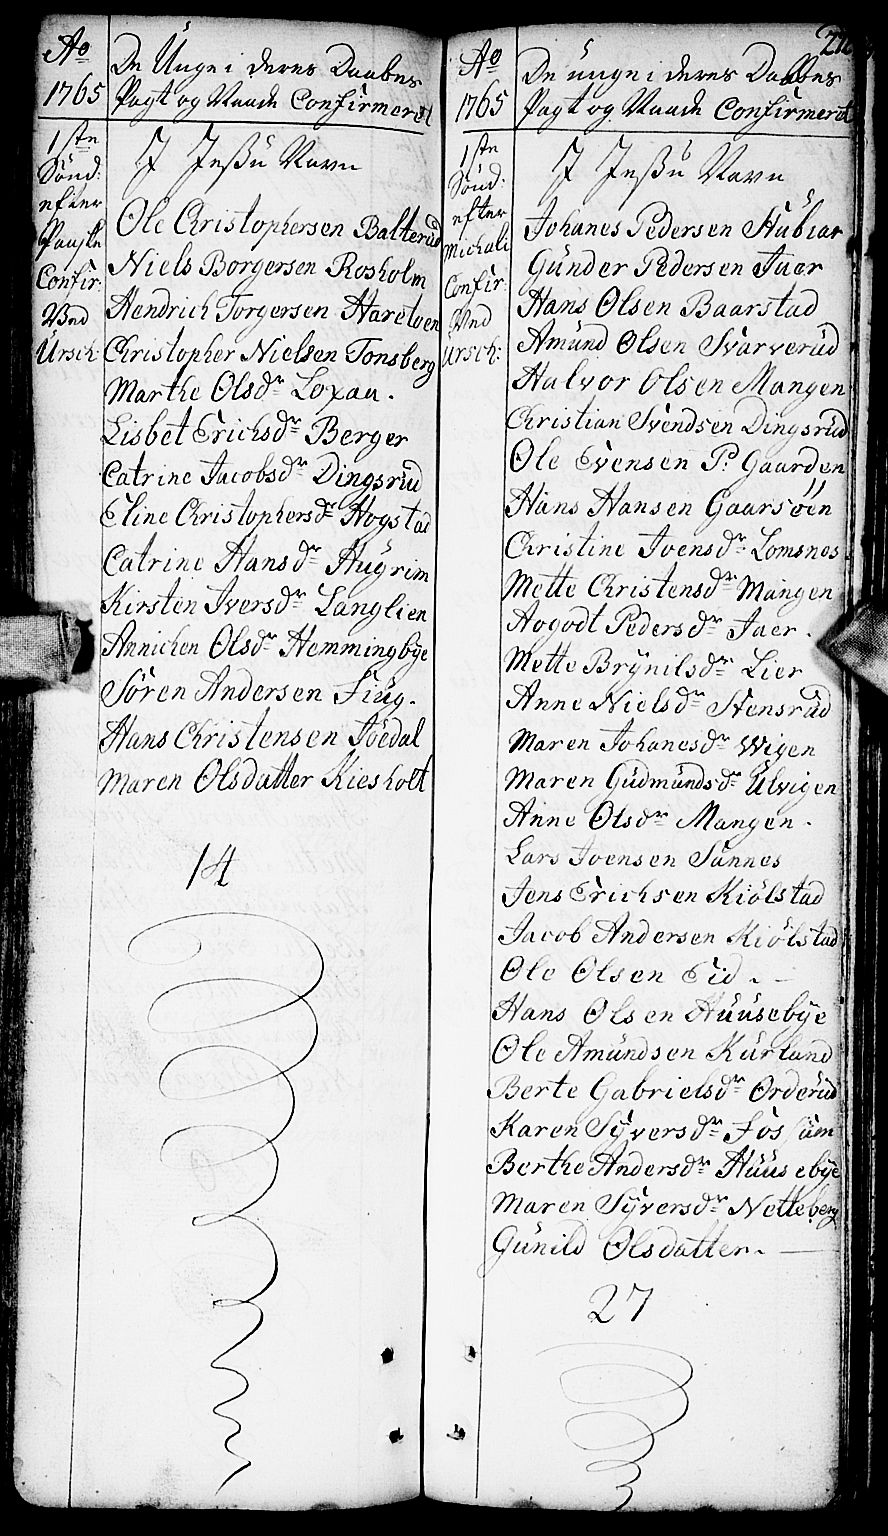 Ao
1765
De Unge i deres Daabes
Pagt og Naade Confirmeret
1ste
Sønd:
efter
Paaske
Confir:
Ved
Ursch:
I Jessu Navn
Ole Christophersen Balterud
Niels Borgersen Rosholm
Hendrich Torgersen Haretoen
Christopher Nielsen Tonsberg
Marthe Olsdr Loxaa.
Lisbet Erichsdr Berger
Catrine Jacobsdr Dingsrud
Eline Christophersdr Hogstad
Catrine Hansdr Hugrim
Kirsten Iversdr Langlien
Annichen Olsdr Hemmingbye
Søren Andersen Fiug.
Hans Christensen Toedal
Maren Olsdatter Kiesholt
14
Ao
1765
De unge i deres Daabes
Pagt og Naade Confirmeret
1ste
Sønd:
efter
Michali
Confir:
Ved
Ursch:
I Jessu Navn
Johanes Pedersen Hubiar
Gunder Pedersen Juer
Hans Olsen Baarstad
Amund Olsen Svarverud
Halvor Olsen Mangen
Christian Svendsen Dingsrud
Ole Evensen Pr Gaarden
Hans Hansen Gaarsöen
Christine Joensdr Lomsnes.
Mette Christensdr Mangen
Aogodt Pedersdr Juer.
Mette Brynilsdr Lier
Anne Nielsdr Stensrud
Maren Johanesdr Wigen
Maren Gudmundsdr Ulvigen
Anne Olsdr Mangen.
Lars Joensen Sannes
Jens Erichsen Kiölstad
Jacob Andersen Kiölstad
Ole Olsen Eid.
Hans Olsen Huusebye
Ole Amundsen Kurland
Berte Gabrielsdr Orderud
Karen Syversdr Fossum
Berthe Andersdr Huusebye
Maren Syversdr Netteberg
Gunild Olsdatter.
27